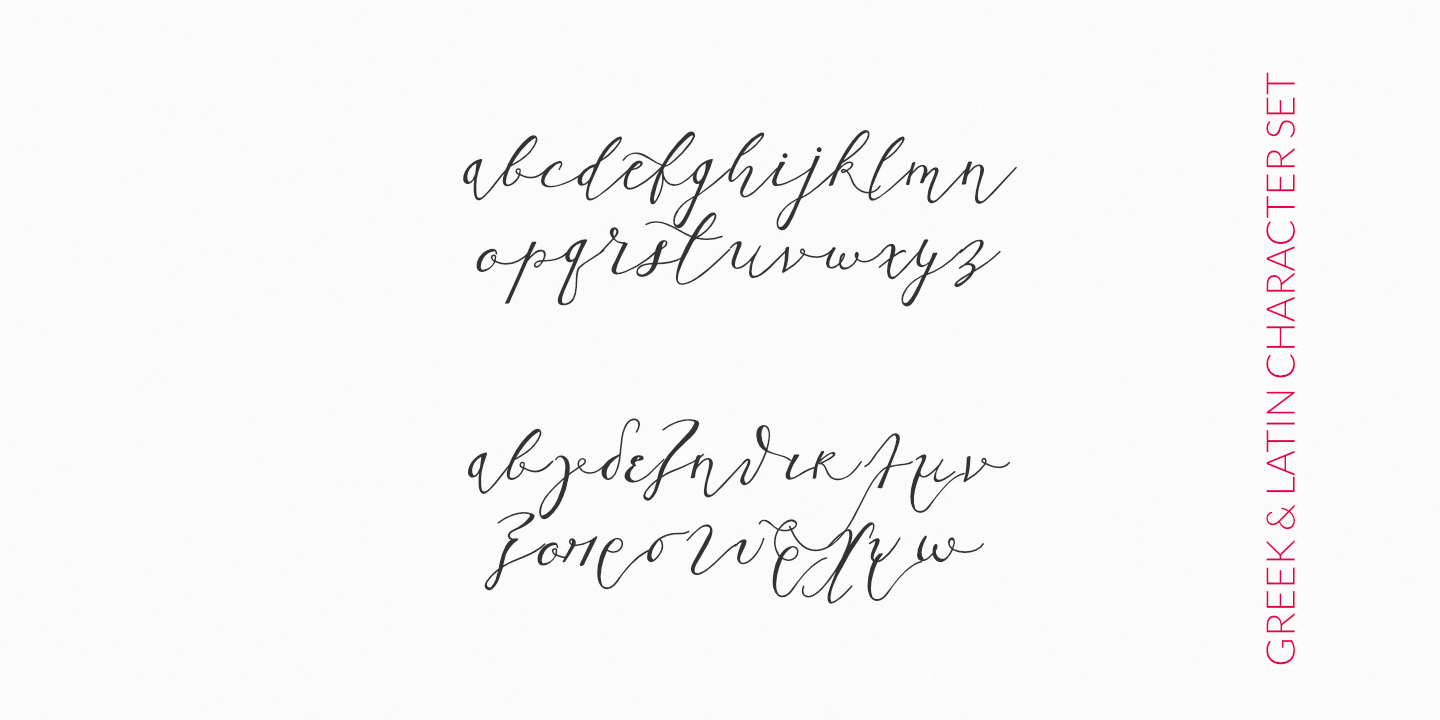 abcdefghijklmn
opqrstuvwxyz
αβγδεζηθικλμν
ξοπρστυφχψω
GREEK & LATIN CHARACTER SET